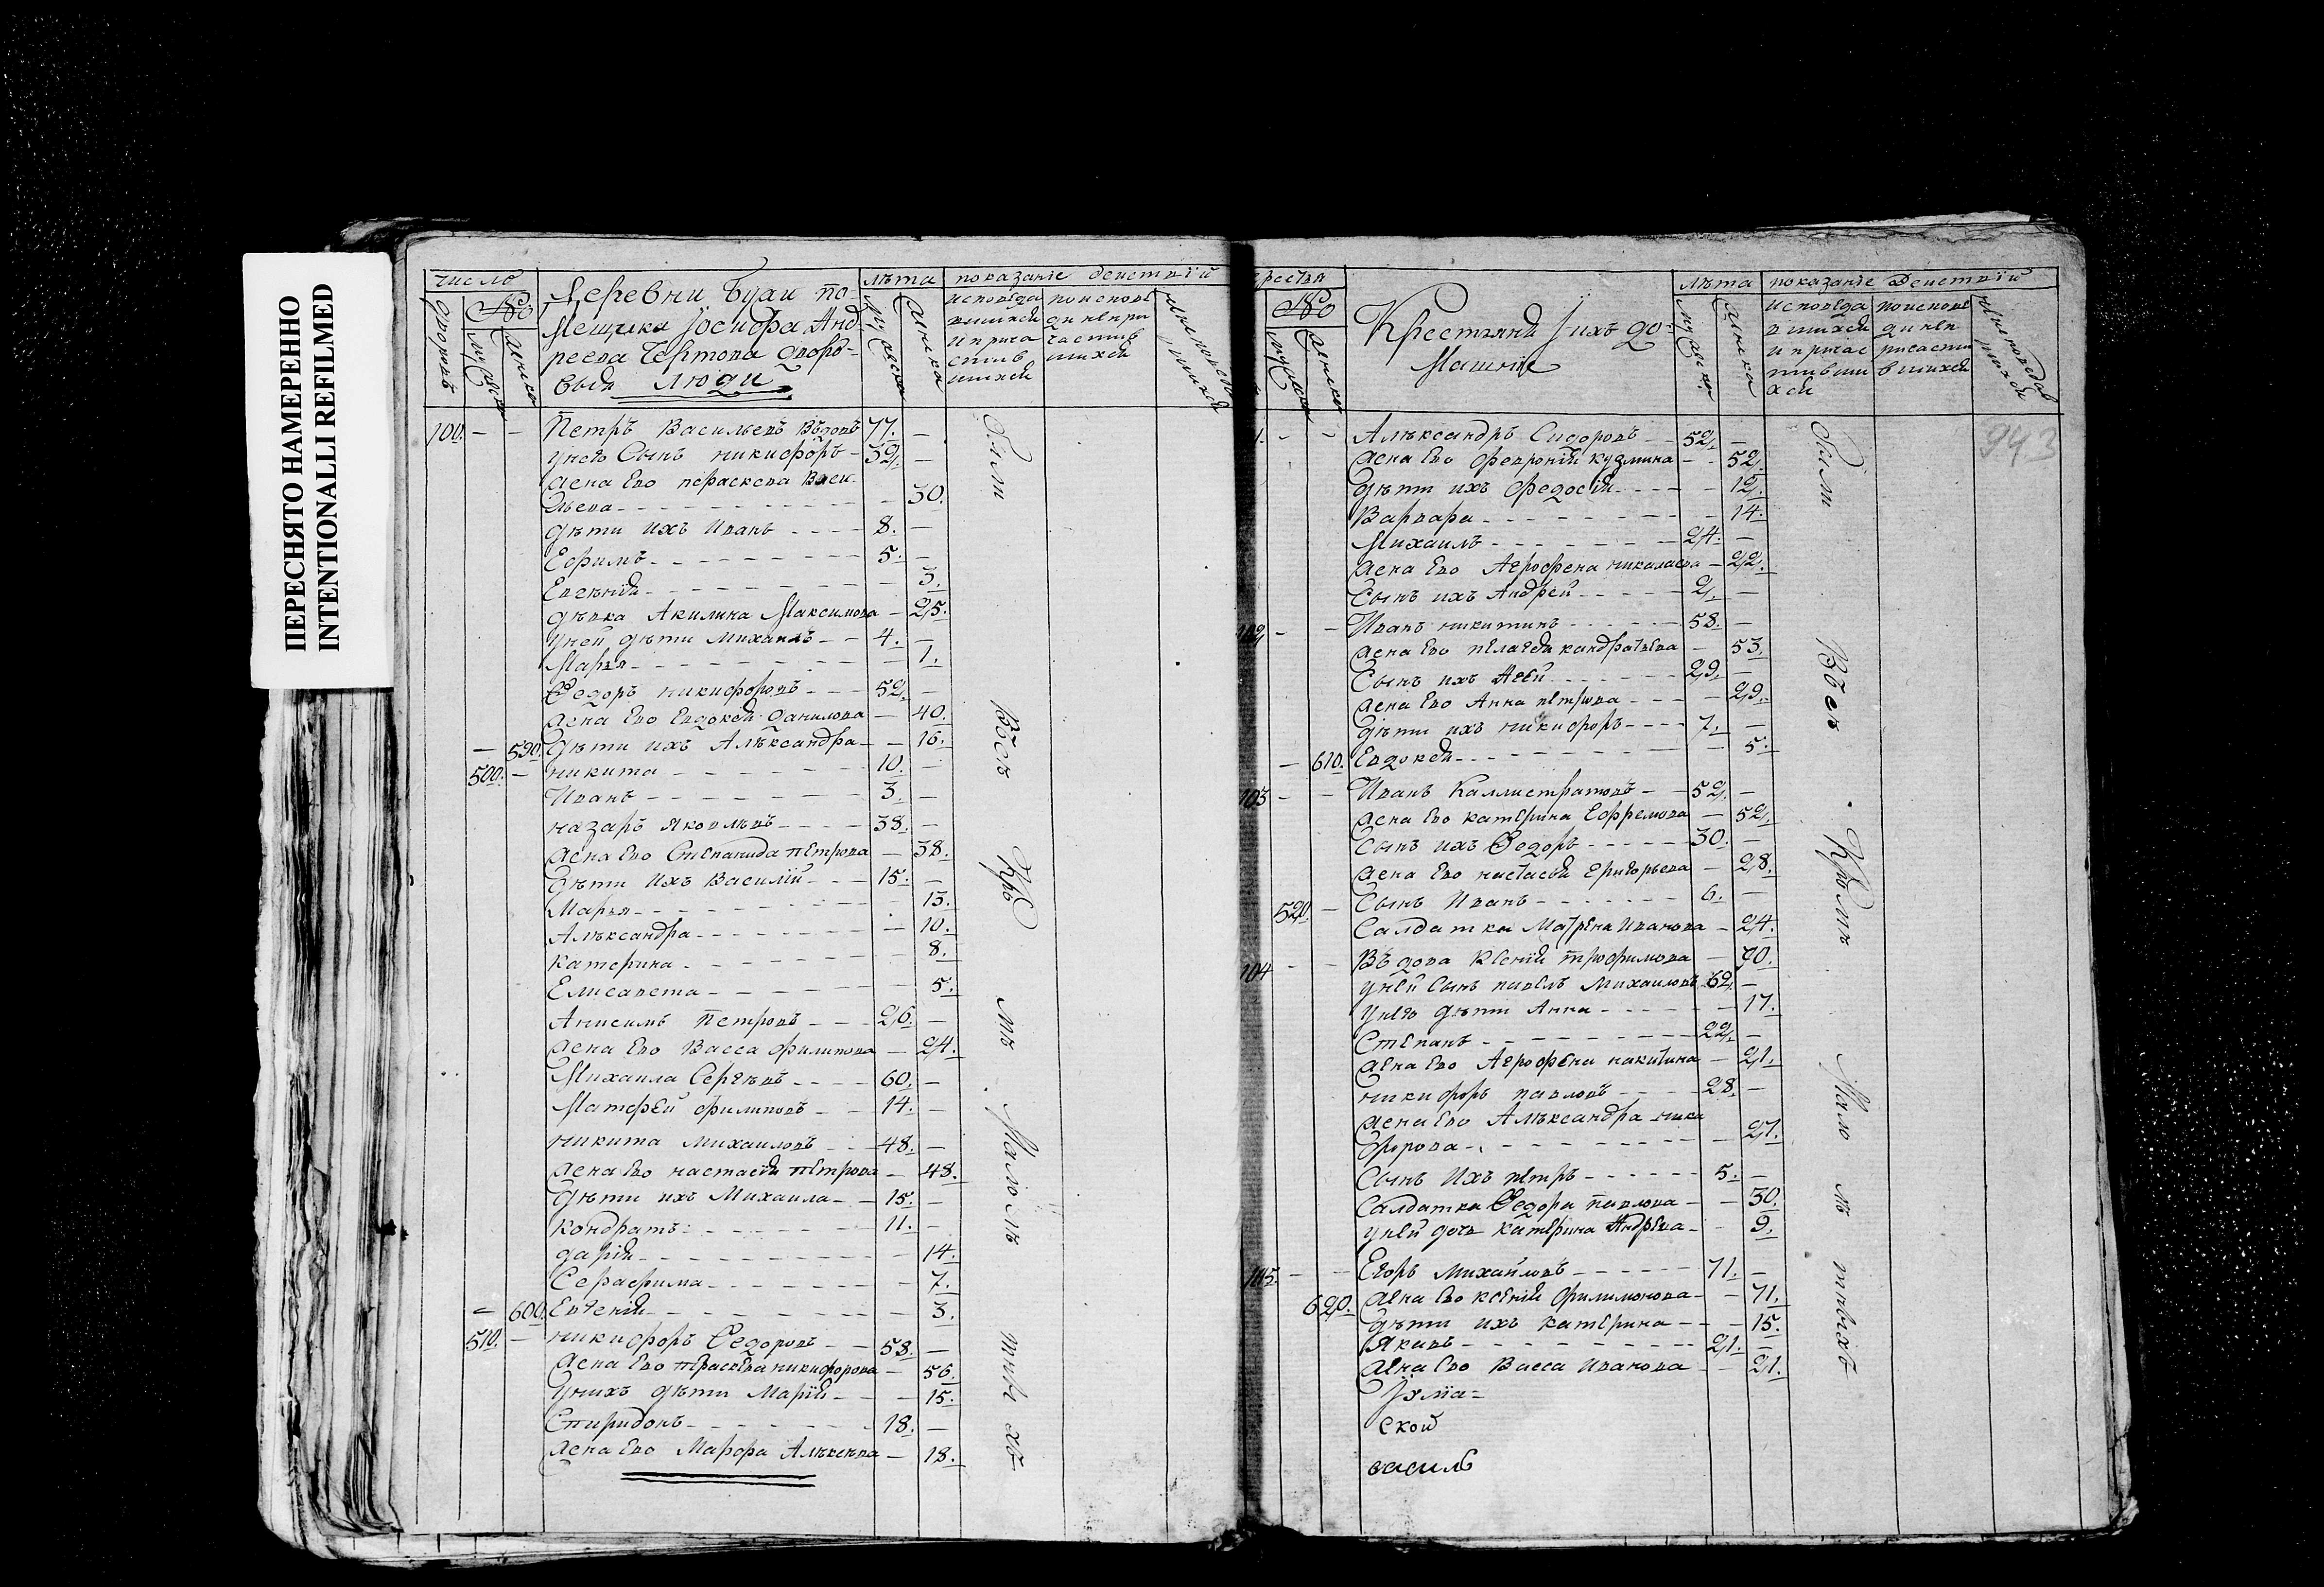 ПЕРЕСНЯТО НАМЕРЕННО
INTENTIONALLI REFILMED
число
№
дворовъ
мужеска
женска
Деревни Бухи по-
мещика Iосифа Анд-
реева Чертова дворо-
выя люди
лѣта
мужеска
женска
показанiе действiй
исповеда
вшихся
и прича
стив
шихся
по испове
ди не при
частив
шихся
100. Петръ Васильевъ Вдовъ 77.
у него Сынъ никифоръ 32.
жена Ево параскева Васи-
льева 30.
дѣти ихъ Иванъ 8.
Ефимъ 5.
Евгенiя 3.
дѣвка Акилина Максимова 25.
у ней дѣти Михаилъ 4.
Марья 1.
Ѳедоръ никифоровъ 52.
жена Ево Евдокея Данилова 40.
590. дѣти ихъ Александра 16.
500. никита 10.
Иванъ 3.
назаръ Яковлевъ 38.
жена Ево Степанида петрова 38.
дѣти ихъ Василiй 15.
Марья 13.
Александра 10.
катерина 8.
Елисавета 5.
Анисимъ Петровъ 26.
жена Ево Васса филипова 24.
Михаила Сергѣевъ 60.
Матфей филиповъ 14.
никита михаиловъ 48.
жена Ево настасiя петрова 48.
дѣти ихъ Михаила 15.
кондратъ 11.
дарiя 14.
Серафима 7.
600. Евгенiя 3.
510. никифоръ Ѳедоровъ 58.
жена Ево параскева никифорова 56.
у нихъ дѣти Марiя 15.
Спиридонъ 18.
жена Ево Марфа Алексѣева 18.
Сiи
Всѣ
Кро
мѣ
Малолѣ
тны
хъ
№
мужеска
женска
Крестьяня Ихъ до-
машнiе
лѣта
мужеска
женска
показанiе действiй
исповеда
вшихся
и причас
тивши
хся
по испове
ди не п
ричасти
вшихся
943
Александръ Сидоровъ 52.
жена Ево Февронiя кузмина 52.
дѣти ихъ Федосiя 12.
Варвара 14.
Михаилъ 24.
жена Ево Агрофена николаева 22.
Сынъ ихъ Андрей 2.
102 Иванъ никитинъ 58.
жена Ево пелагея кандратьева 53.
Сынъ ихъ Агей 29.
жена Ево Анна петрова 29.
дѣти ихъ никифоръ 7.
610. Евдокея 5.
103 Иванъ Каллистратовъ 52.
жена Ево катерина Ефремова 52.
Сынъ ихъ Ѳедоръ 30.
жена Ево настасья григорьева 28.
520. Сынъ Иванъ 6.
Салдатка Матрена Иванова 24.
104 Вдова Ксенiя трофимова 90.
у ней Сынъ павелъ Михаиловъ 62.
у него дѣти Анна 17.
Степанъ 22.
жена Ево Агрофена никитина 21.
никифоръ павловъ 28.
жена Ево Александра ники
форова 27.
Сынъ Ихъ петръ 5.
Салдатка Ѳедора павлова 30.
у ней дочь катерина Андрева 9.
105. Егоръ михайловъ 71.
620. жена Ево ксенiя филимонова 71.
дѣти ихъ катерина 15.
Яковъ 21.
жена Ево Васса Иванова 21.
ской
василь
Сiи
Всѣ
Кромѣ
Мало
лѣ
тныхъ